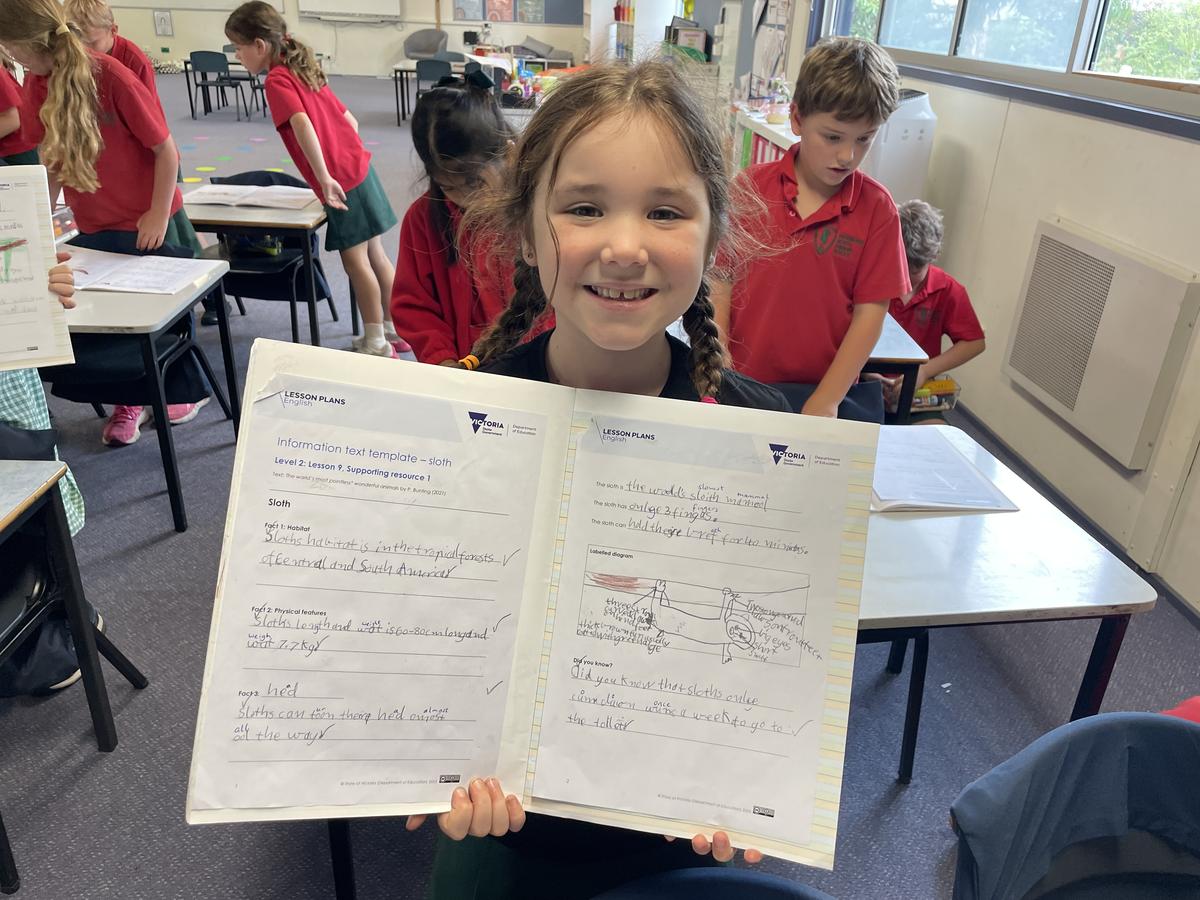 LESSON PLANS
English
VICTORIA
State
Government
Department
of Education
Information text template – sloth
Level 2: Lesson 9, Supporting resource 1
Text: the world's most pointless* wonderful animals by P. Bunting (2021)
Sloth
Fact 1: Habitat
Sloths habitat is in the tropical forests
of central and South America
Fact 2: Physical features
weigh
Sloths length and wat is 60-80cm long and
weigh
wat 7.7 Kg
Fact 3: hed
almost
Sloths can toon there hed omost
all
ool the way
1
© State of Victoria (Department of Education) 2023
LESSON PLANS
English
VICTORIA
State
Government
Department
of Education
slowest mammal
The sloth is the world's sloith mameal
fingers
The sloth has onlge 3 fingas.
The sloth can hold there for
Labelled diagram
three
curved
big eyes
short
Did you know?
Did you know that sloths onlge
once
cum down wuns a week to go to
the tollet
2
© State of Victoria (Department of Education) 2023